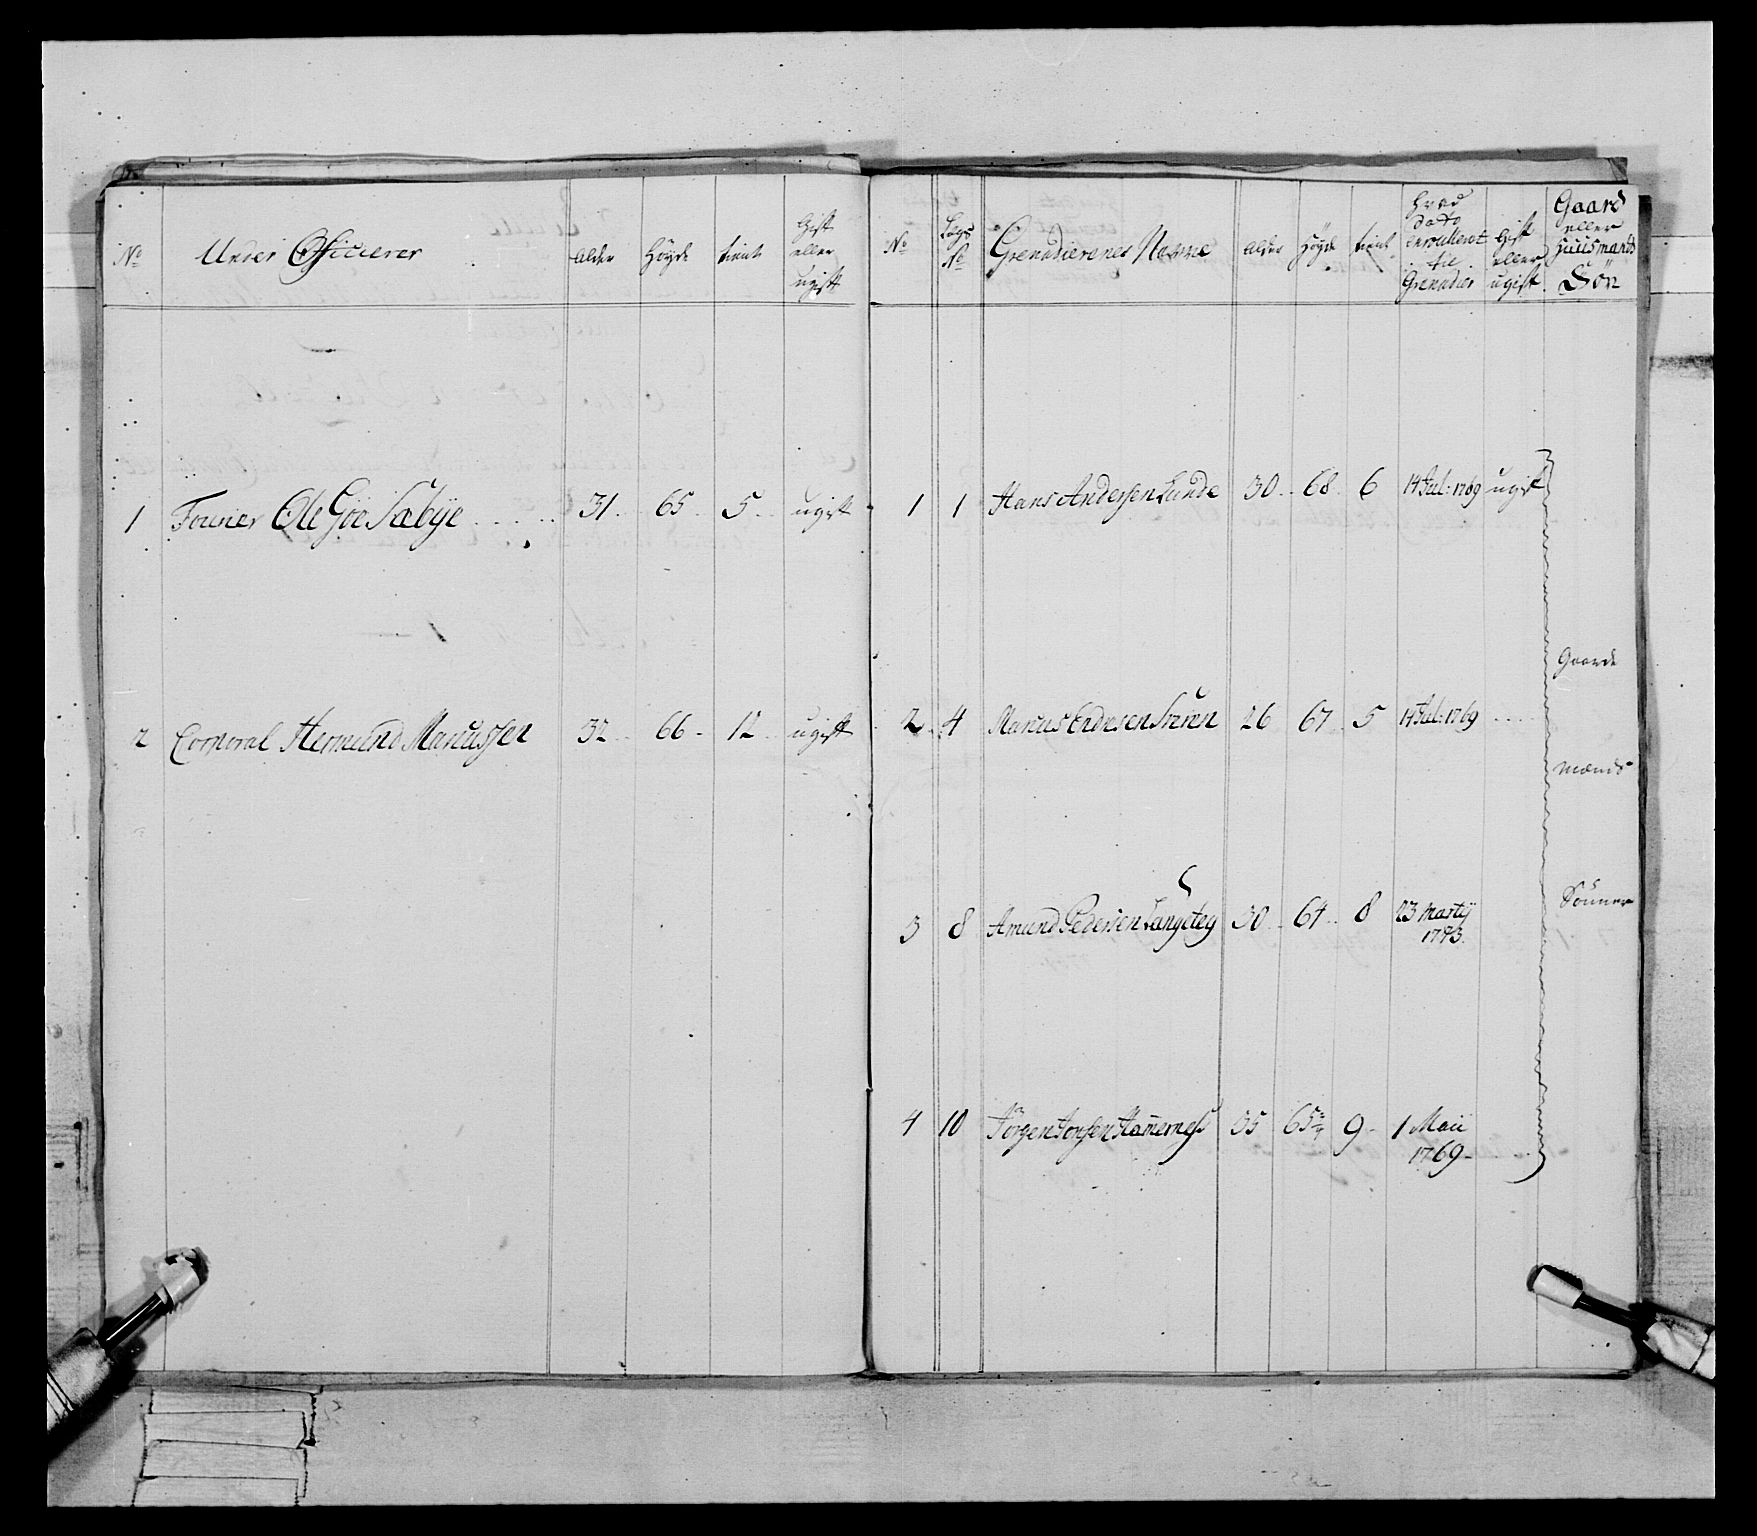 No Under Officierer Alder Høyde tient Gift eller ugift
1 Fourier Ole Göe Sæbye 31 65 5 ugift
2 Corporal Hermund Mariussen 32 66 12 ugift
No Lægs No Grenadierenes Nafne Alder Høyde tient Hvad Dato enroulleret til Grenadier Gift eller ugift Gaard eller Huusmands Sön
1 1 Hans Andersen Lunde 30 68 6 14 Jul: 1769 ugift
Gaarde
2 4 Marius Endresen 26 67 5 14 Jul: 1769
Mænds
3 8 Amund Pedersen Langeteg 30 64 8 23 Martij Sönner
1773
4 10 Jörgen Jonsen 35 65 9 1 Maii
1769